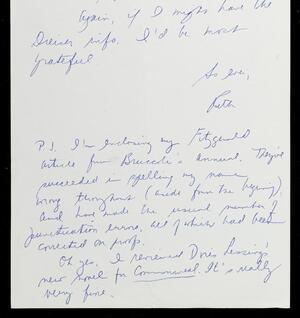 Again, if I might have the
Dreiser info. I'd be most
grateful
As ever,
Ruth
P.S. I'm enclosing my Fitzgerald
article from Bruccoli's annual. They've
succeeded in spelling my name
wrong throughout (aside from the byline),
and have made the usual number of
punctuation errors, all of which had been
corrected on proofs.
Oh yes. I reviewed Doris Lessing's
new novel for Commonweal. It's really
very fine.